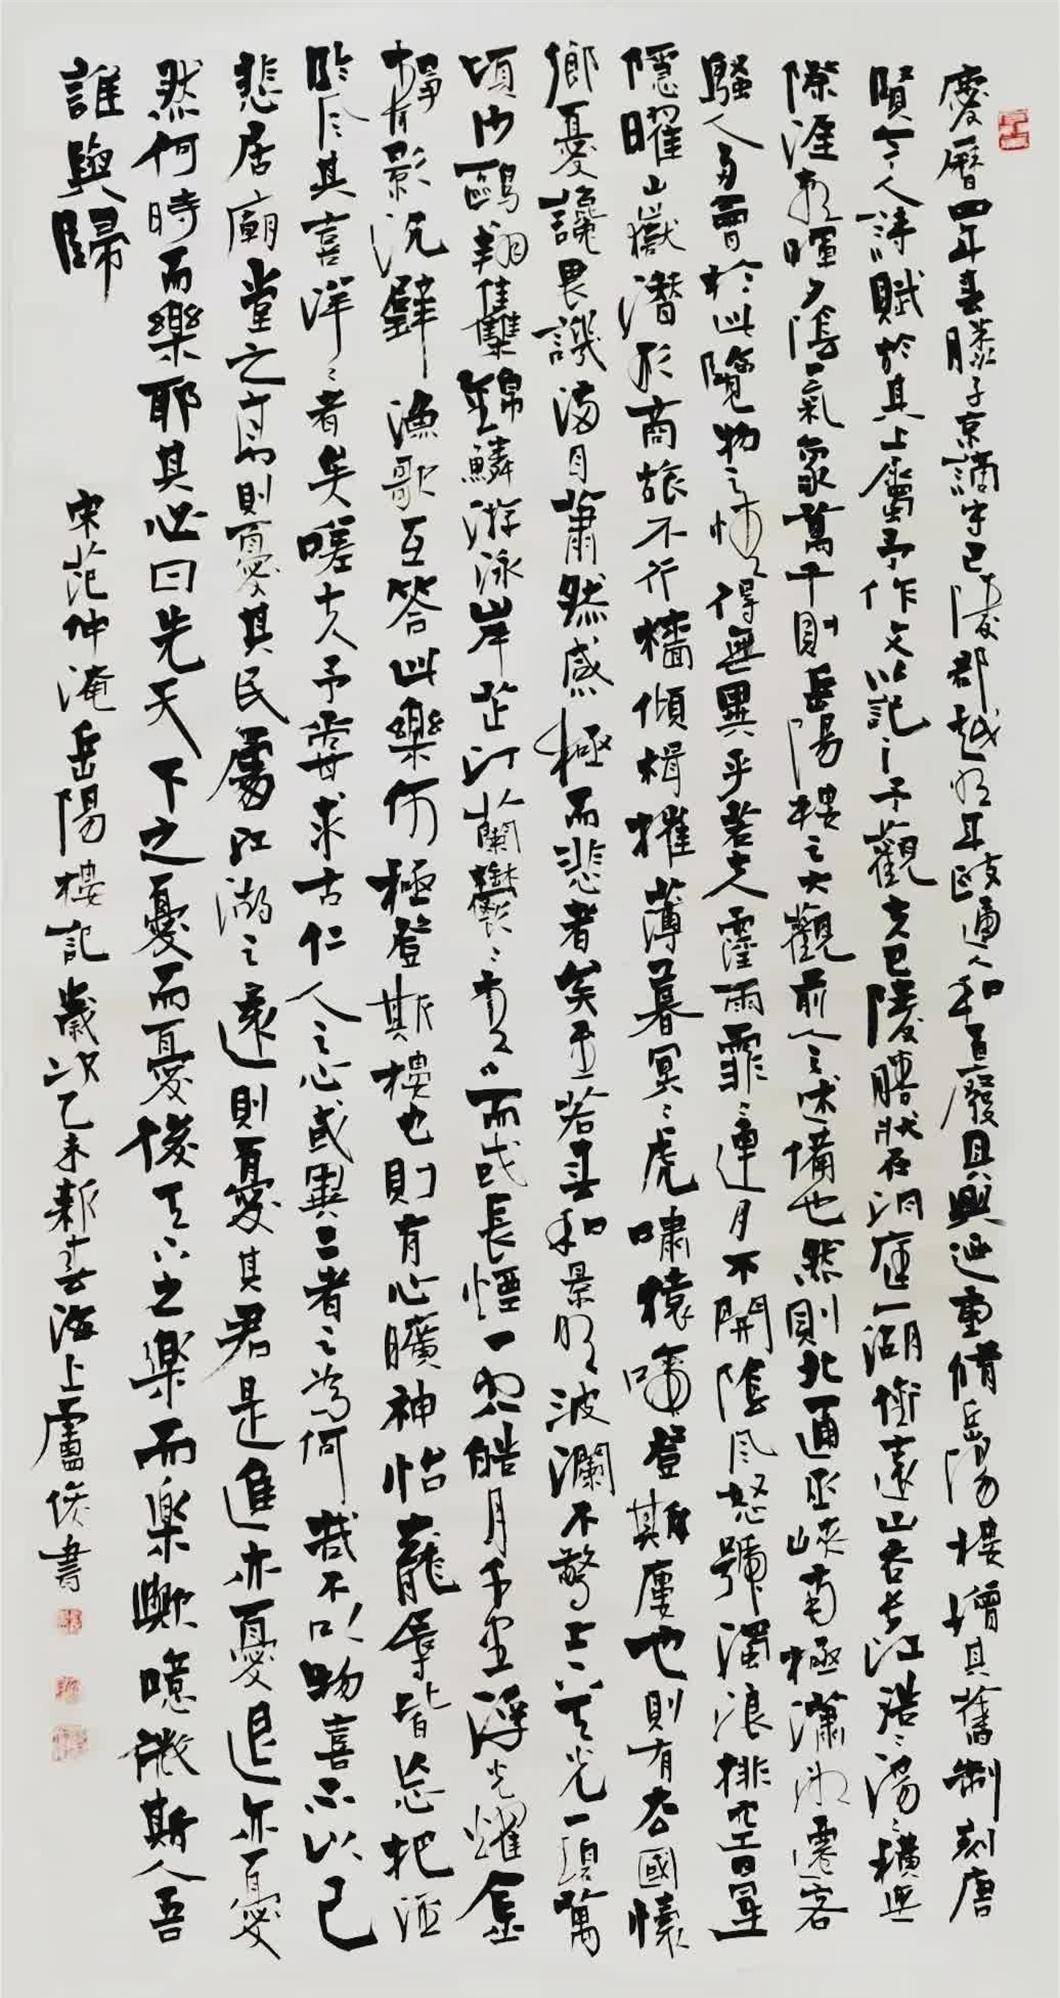 慶曆四年春滕子京謫守巴陵郡越明年政通人和百廢具興迺重脩岳陽樓增其舊制刻唐
賢今人詩賦於其上屬予作文以記之予觀夫巴陵勝狀在洞庭一湖銜遠山吞長江浩〻湯〻橫無
際涯朝暉夕陰氣象萬千則岳陽樓之大觀前人之述備也然則北通巫峽南極瀟湘遷客
騷人多會於此覽物之情得無異乎若夫霪雨霏〻連月不開陰風怒號濁浪排空日星
隱曜山嶽潛形商旅不行檣傾楫摧薄暮冥〻虎嘯猿啼登斯樓也則有去國懷
鄉憂讒畏譏滿目蕭然感極而悲者矣至若春和景明波瀾不驚上下天光一碧萬
頃沙鷗翔集錦鱗游泳岸芷汀蘭鬱〻青〻而或長煙一空皓月千里浮光耀金
靜影沉璧漁歌互答此樂何極登斯樓也則有心曠神怡寵辱皆忘把酒
臨風其喜洋〻者矣嗟夫予嘗求古仁人之心或異二者之為何哉不以物喜不以己
悲居廟堂之高則憂其民處江湖之遠則憂其君是進亦憂退亦憂
然何時而樂耶其必曰先天下之憂而憂後天下之樂而樂歟噫微斯人吾
誰與歸
宋范仲淹岳陽樓記歲次乙未新春海上盧俊書